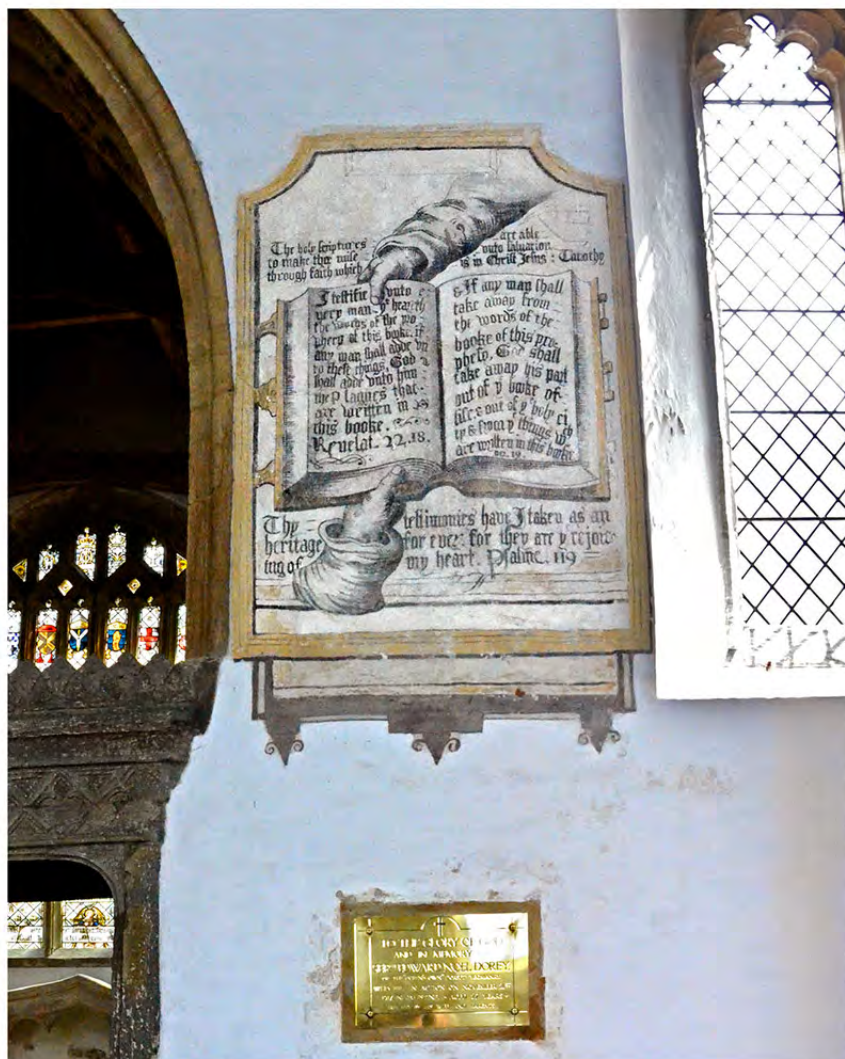 The holy scriptures are able
to make thee wise vnto saluation
through faith which is in Christ Jesus : Timothy
I testifie vnto e
very man yt heareth
the words of the pro
phecy of this booke, if
any man shall adde vn
to these things, God
shall adde vnto him
the Plagues that
are written in
this booke.
Revelat. 22.18.
& If any man shall
take away from
the words of the
booke of this pro
phesy, God shall
take away his part
out of y booke of
life & out of y holy ci
ty & from y things wch
are written in this booke
19.
Thy testimonies have I taken as an
heritage for ever: for they are y rejoyc
ing of my heart. Psalme. 119
TO THE GLORY OF GOD
AND IN MEMORY
EDWARD NOEL DOREY
IN ACTION ON NOVEMBER